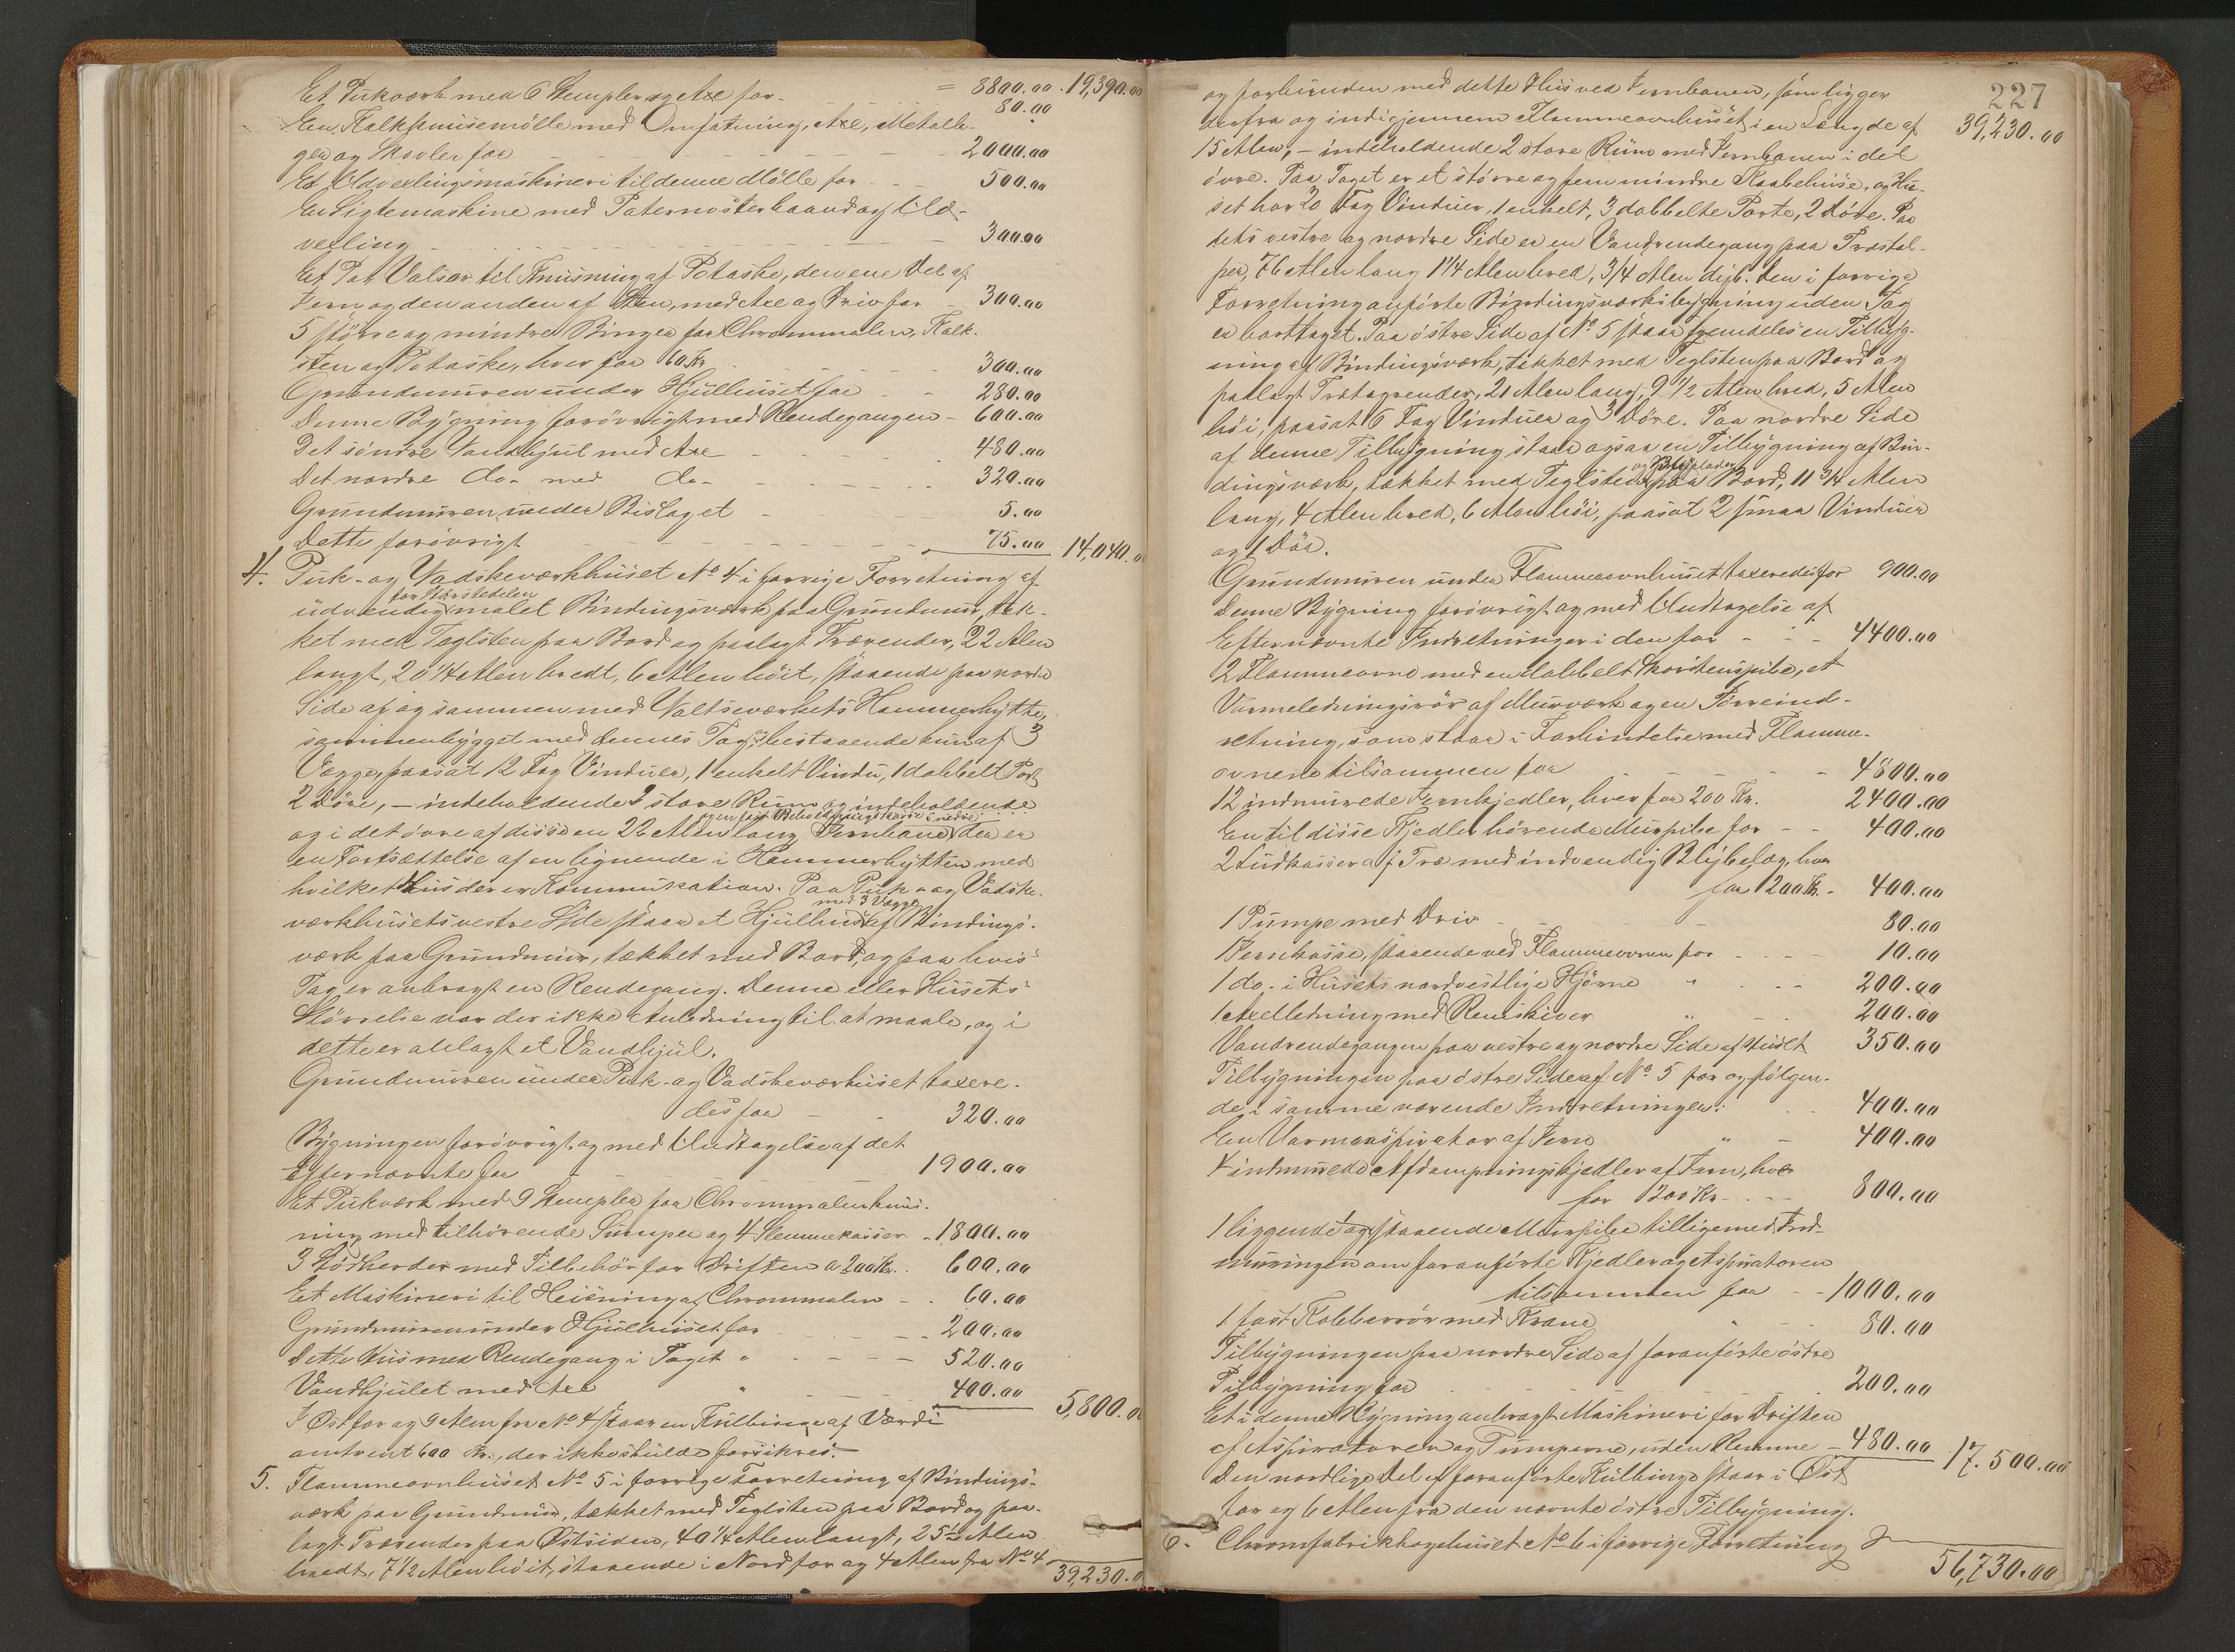 Et Pukværk med 6 Stempler og Axe for = 8800.00 19,390.00
80.00
En Kalkknusemølle med Omfatning, Axe, Metalle-
ger og Skovler for 2000.00
Et Udvexlingsmaskineri til denne Mølle for 500.00
En Sigtemaskine med Paternosterbaand og Ud-
vexling 300.00
Et Par Valser til Knusning af Potaske, den ene Del af
Jern og den anden af Sten, med Axe og Driv for 300.00
5 større og mindre Binger for Chrommalm, Kalk-
sten og Potaske, hver for 60 Kr 300.00
Grundmuren under Hjulhuset for 280.00
Denne Bygning forøvrigt med Rendegangen 600.00
Det søndre Vandhjul med Axe 480.00
Det nordre do. med do. 320.00
Grundmuren under Bislaget 5.00
Dette forøvrigt 75.00 14,040.0
4. Puk- og Vadskeværkhuset No 4 i forrige Forretning af
for Størstedelen
udvendig malet Bindingsværk paa Grundmur, tæk-
ket med Teglsten paa Bord og paalagt Trærender, 22 Alen
langt, 20 1/4 Alen bredt, 6 Alen høit, staaende paa nordre
Side af og sammen med Valtseværkets Hammerhytte,
sammenbygget med dennes Tag, bestaaende kun af 3
Vægge, paasat 12 Fag Vinduer, 1 enkelt Vindu, 1 dobbelt Port,
2 Døre, – indeholdende 2 store Rum og indeholdende
og i det øvre af disse en 22 Alen lang Jernbane, der er
en Fortsættelse af en lignende i Hammerhytten med
hvilket Huus der er Kommunikation. Paa Puk- og Vadske-
med 3 Vægge
værkhusets vestre Side staar et Hjulhus af Bindings-
værk paa Grundmur, tækket med Bord, og paa hvis
Tag er anbragt en Rendegang. Denne eller Husets
Størrelse var der ikke Anledning til at maale, og i
dette er anlagt et Vandhjul.
Grundmuren under Puk- og Vadskeværkhuset taxere-
des for 320.00
Bygningen forøvrigt og med Undtagelse af det
Efternævnte for 1900.00
Et Pukværk med 9 Stempler for Chrommalmknus-
ning med tilhørende Sumper og 4 Slemmekasser 1800.00
3 Stødherder med Tilbehør for Driften a 200 Kr. 600.00
Et Maskineri til Heisning af Chrommalm 60.00
Grundmuren under Hjulhuset for 200.00
Dette Huus med Rendegang i Taget " 520.00
Vandhjulet med Axe " 400.00 5,800.0
I Øst for og 9 Alen fra No 4 staar en Kulbinge af Værdi
omtrent 600 Kr., der ikke skulde forsikres.
5. Flammeovnhuset No 5 i forrige Forretning af Bindings-
værk paa Grundmur, tækket med Teglsten paa Bord og paa-
lagt Trærender paa Østsiden, 40 1/4 Alen langt, 25 1/2 Alen
bredt, 7 1/2 Alen høit, staaende i Nord for og 4 Alen fra No 4
39,230.0
227
og forbunden med dette Huus ved Jernbanen, som ligger
derfra og ind igjennem Flammeovnhuset i en Længde af 39,230.00
15 Alen, – indeholdende 2 store Rum med Jernbanen i det
øvre. Paa Taget er et større og fem mindre Kaabehuse, og Hu-
set har 20 Fag Vinduer, 1 enkelt, 3 dobbelte Porte, 2 Døre. Paa
dets vestre og nordre Side er en Vandrendegang paa Træstol-
per, 76 Alen lang, 1 1/4 Alen bred, 3/4 Alen dyb. Den i forrige
Forretning anførte Bindingsværksbygning uden Tag
er borttaget. Paa østre Side af No 5 staar fremdeles en Tilbyg-
ning af Bindingsværk, tækket med Teglsten paa Bord og
paalagt Trætagrender, 21 Alen lang, 9 1/2 Alen bred, 5 Alen
høi, paasat 6 Fag Vinduer og 3 Døre. Paa nordre Side
af denne Tilbygning staar ogsaa en Tilbygning af Bin-
dingsværk, tækket med Teglsten paa Bord, 11 3/4 Alen
lang, 4 Alen bred, 6 Alen høi, paasat 2 smaa Vinduer
og 1 Dør.
Grundmuren under Flammeovnhuset taxeredes for 900.00
Denne Bygning forøvrigt og med Undtagelse af
Efternævnte Indretninger i den for 4400.00
2 Flammeovne med en dobbelt Skorstenspibe, et
Varmeledningsrør af Murværk og en Tørreind-
retning, som staar i Forbindelse med Flamme-
ovnene tilsammen for 4800.00
12 indmurede Jernkjedler, hver for 200 Kr. 2400.00
En til disse Kjedler hørende Murpibe for 400.00
2 Ludkasser af Træ med indvendig Blybelæg, hver
for 200 Kr. 400.00
1 Pumpe med Driv 80.00
1 Jernkasse, staaende ved Flammeovnen for 10.00
1 do. i Husets nordvestlige Hjørne " 200.00
1 Axelledning med Remskiver " 200.00
Vandrendegangen paa vestre og nordre Side af Huset 350.00
Tilbygningen paa østre Side af No 5 for og følgen-
de i samme værende Indretninger: 400.00
En Varmeaspirator af Jern " 400.00
4 indmurede Afdampningskjedler af Jern, hver
for 200 Kr. 800.00
1 liggende og 1 staaende Murpibe tilligemed Ind-
muringen om foranførte Kjedler og Aspiratoren
tilsammen for 1000.00
1 fast Kobberrør med Krane " 80.00
Tilbygningen paa nordre Side af foranførte østre
Tilbygning for 200.00
Et i denne Bygning anbragt Maskineri for Driften
af Aspiratoren og Pumperne, uden Remme 480.00 17.500.00
Den nordlige Del af foranførte Kulbinge staar i Øst
for og 6 Alen fra den nævnte østre Tilbygning.
6. Chromfabrikhagehuset No 6 i forrige Forretning
56,730.00